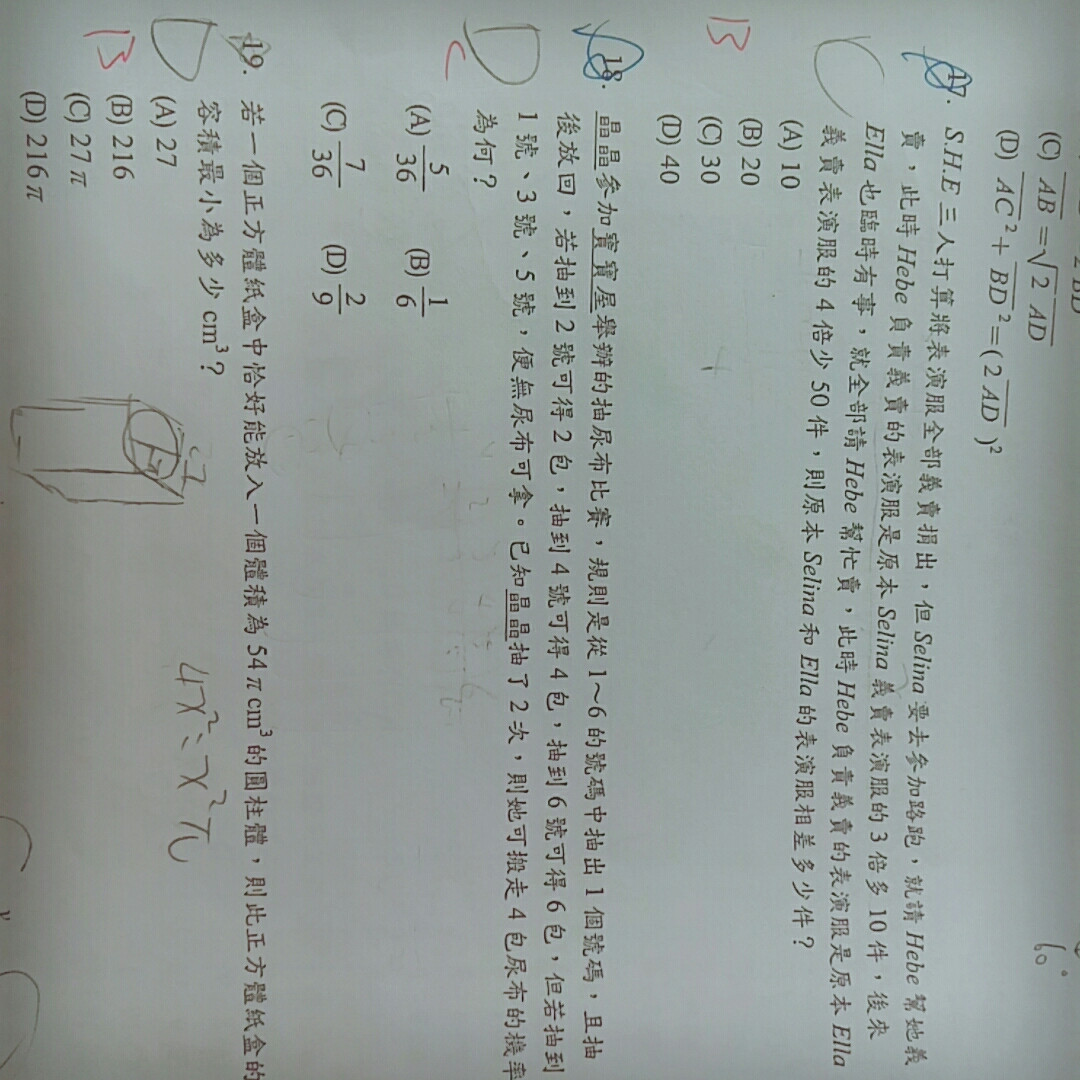 (C) AB=√2 AD
(D) AC²+BD²=(2AD)²
60°
17. S.H.E三人打算將表演服全部義賣捐出，但Selina要去參加路跑，就請Hebe幫她義
賣，此時Hebe負責義賣的表演服是原本Selina義賣表演服的3倍多10件，後來
Ella也臨時有事，就全部請Hebe幫忙賣，此時Hebe負責義賣的表演服是原本Ella
義賣表演服的4倍少50件，則原本Selina和Ella的表演服相差多少件？
C
(A) 10
(B) 20
(C) 30
(D) 40
B
18. 晶晶參加寶寶屋舉辦的抽尿布比賽，規則是從1～6的號碼中抽出1個號碼，且抽
後放回，若抽到2號可得2包，抽到4號可得4包，抽到6號可得6包，但若抽到
1號、3號、5號，便無尿布可拿。已知晶晶抽了2次，則她可搬走4包尿布的機率
為何？
D
C
(A) 5/36 (B) 1/6
(C) 7/36 (D) 2/9
19. 若一個正方體紙盒中恰好能放入一個體積為54π cm³的圓柱體，則此正方體紙盒的
容積最小為多少cm³？
D
(A) 27
(B) 216
(C) 27π
(D) 216π
B
4x²:x²π